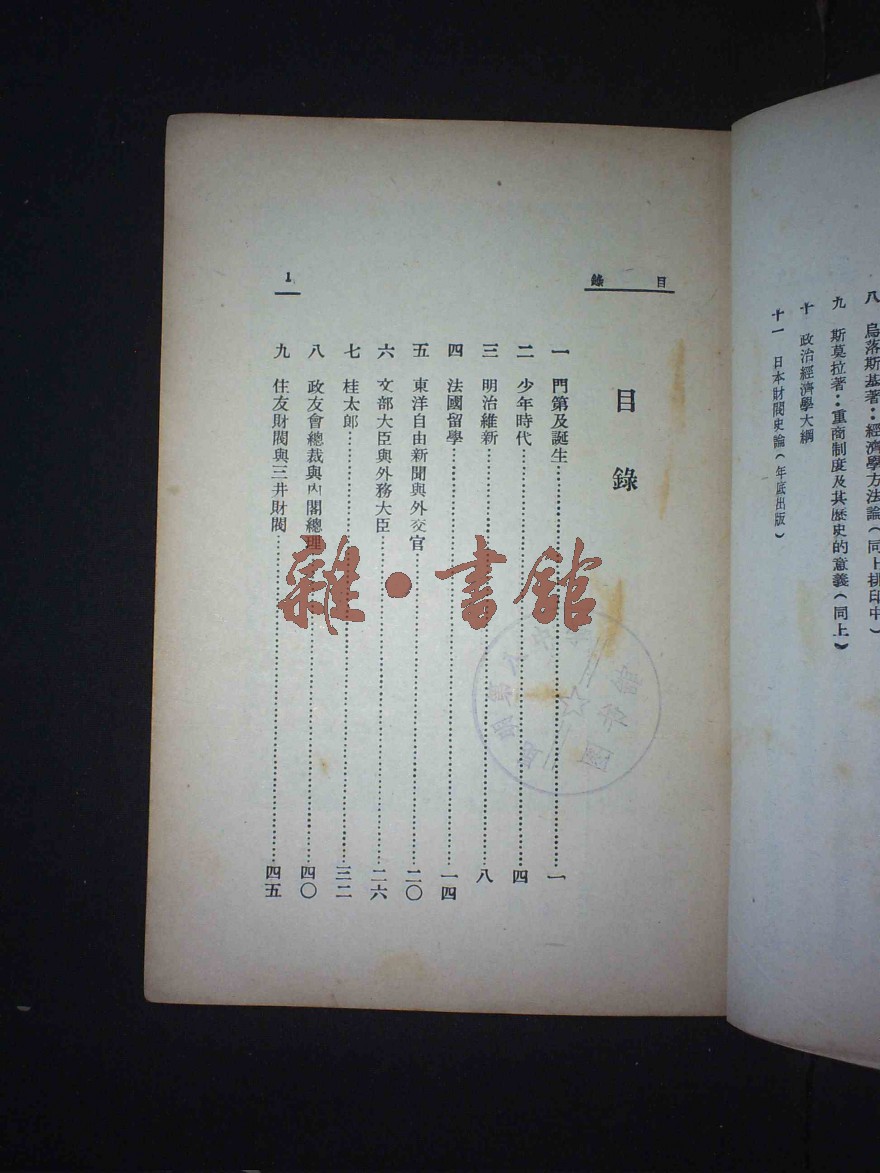 八　烏落斯基著：經濟學方法論（同上排印中）
九　斯莫拉著：重商制度及其歷史的意義（同上）
十　政治經濟學大綱
十一　日本財閥史論（年底出版）
目錄
目錄
一　門第及誕生……一
二　少年時代……四
三　明治維新……八
四　法國留學……一四
五　東洋自由新聞與外交官……二〇
六　文部大臣與外務大臣……二六
七　桂太郎……三二
八　政友會總裁與內閣總理……四〇
九　住友財閥與三井財閥……四五
1
雜·書館
圖書館